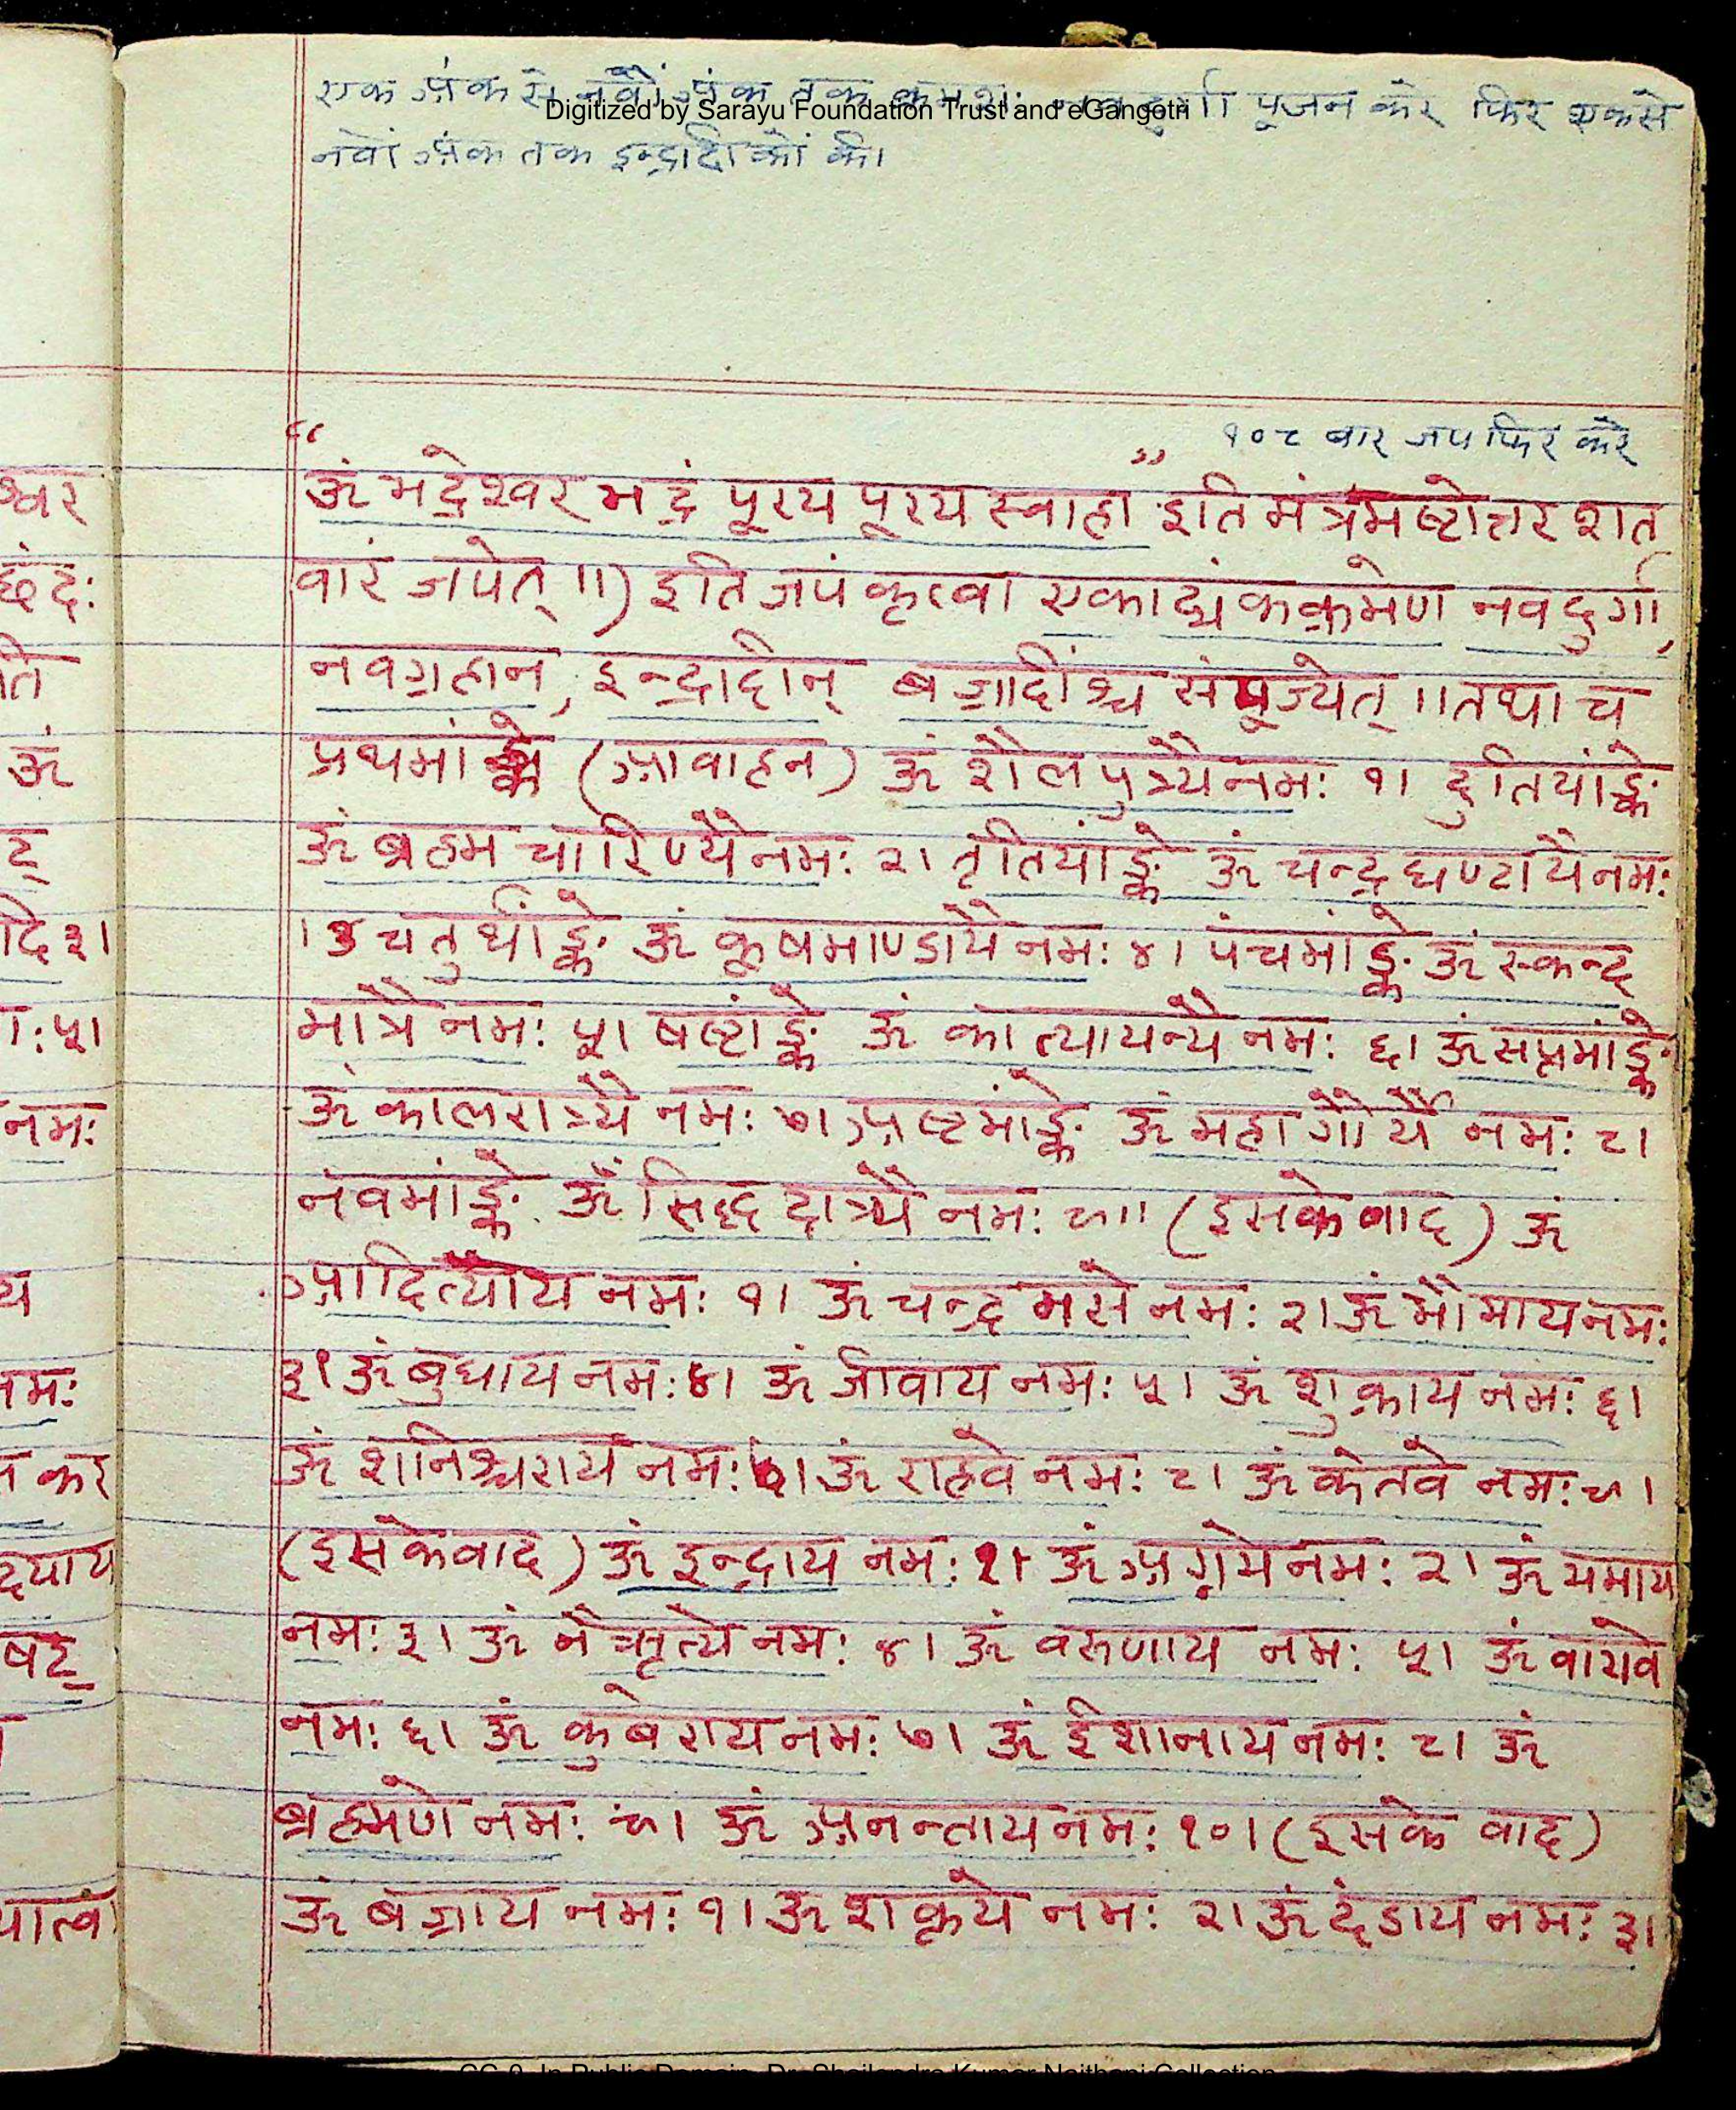 एक अंक से नवों अंक तक क्रमशः पूजन करे फिर एकसे
Digitized by Sarayu Foundation Trust and eGangotri
नवों अंक तक इन्द्रादीकों की।
१०८ बार जप फिर करे
“ॐ भद्रेश्वर भद्रं पूरय पूरय स्वाहा” इति मंत्रमष्टोत्तर शत
वारं जपेत् ॥) इति जपं कृत्वा एकाद्यंकक्रमेण नवदुर्गा,
नवग्रहान, इन्द्रादीन् बज्रादींश्च संपूज्येत् ॥ तथा च
प्रथमांङ्के (आवाहन) ॐ शैलपुत्र्यै नमः १। दुतियांङ्के
ॐ ब्रह्मचारिण्यै नमः २। तृतियांङ्के ॐ चन्द्रघण्टायै नमः
।३ चतुर्थांङ्के ॐ कूषमाण्डायै नमः ४। पंचमांङ्के ॐ स्कन्द
मात्रै नमः ५। षष्टांङ्के ॐ कात्यायन्यै नमः ६। ॐ सप्तमांङ्के
ॐ कालरात्र्यै नमः ७। अष्टमांङ्के ॐ महागौर्यै नमः ८।
नवमांङ्के ॐ सिद्धदात्र्यै नमः ९॥ (इसके बाद) ॐ
आदित्याय नमः १। ॐ चन्द्रमसे नमः २। ॐ भौमाय नमः
३। ॐ बुधाय नमः ४। ॐ जीवाय नमः ५। ॐ शुक्राय नमः ६।
ॐ शनिश्चराय नमः ७। ॐ राहवे नमः ८। ॐ केतवे नमः ९।
(इसके वाद) ॐ इन्द्राय नमः १। ॐ अग्नये नमः २। ॐ यमाय
नमः ३। ॐ नैऋृत्ये नमः ४। ॐ वरूणाय नमः ५। ॐ वायवे
नमः ६। ॐ कुबेराय नमः ७। ॐ ईशानाय नमः ८। ॐ
ब्रह्मणे नमः ९। ॐ अनन्ताय नमः १०। (इसके वाद)
ॐ बज्राय नमः १। ॐ शक्तये नमः २। ॐ दंडाय नमः ३।
श्वर
छंदः
ति
ॐ
ट्
दि ३।
५।
नमः
य
नमः
कर
षट्
CC-0. In Public Domain. Dr. Shailendra Kumar Naithani Collection